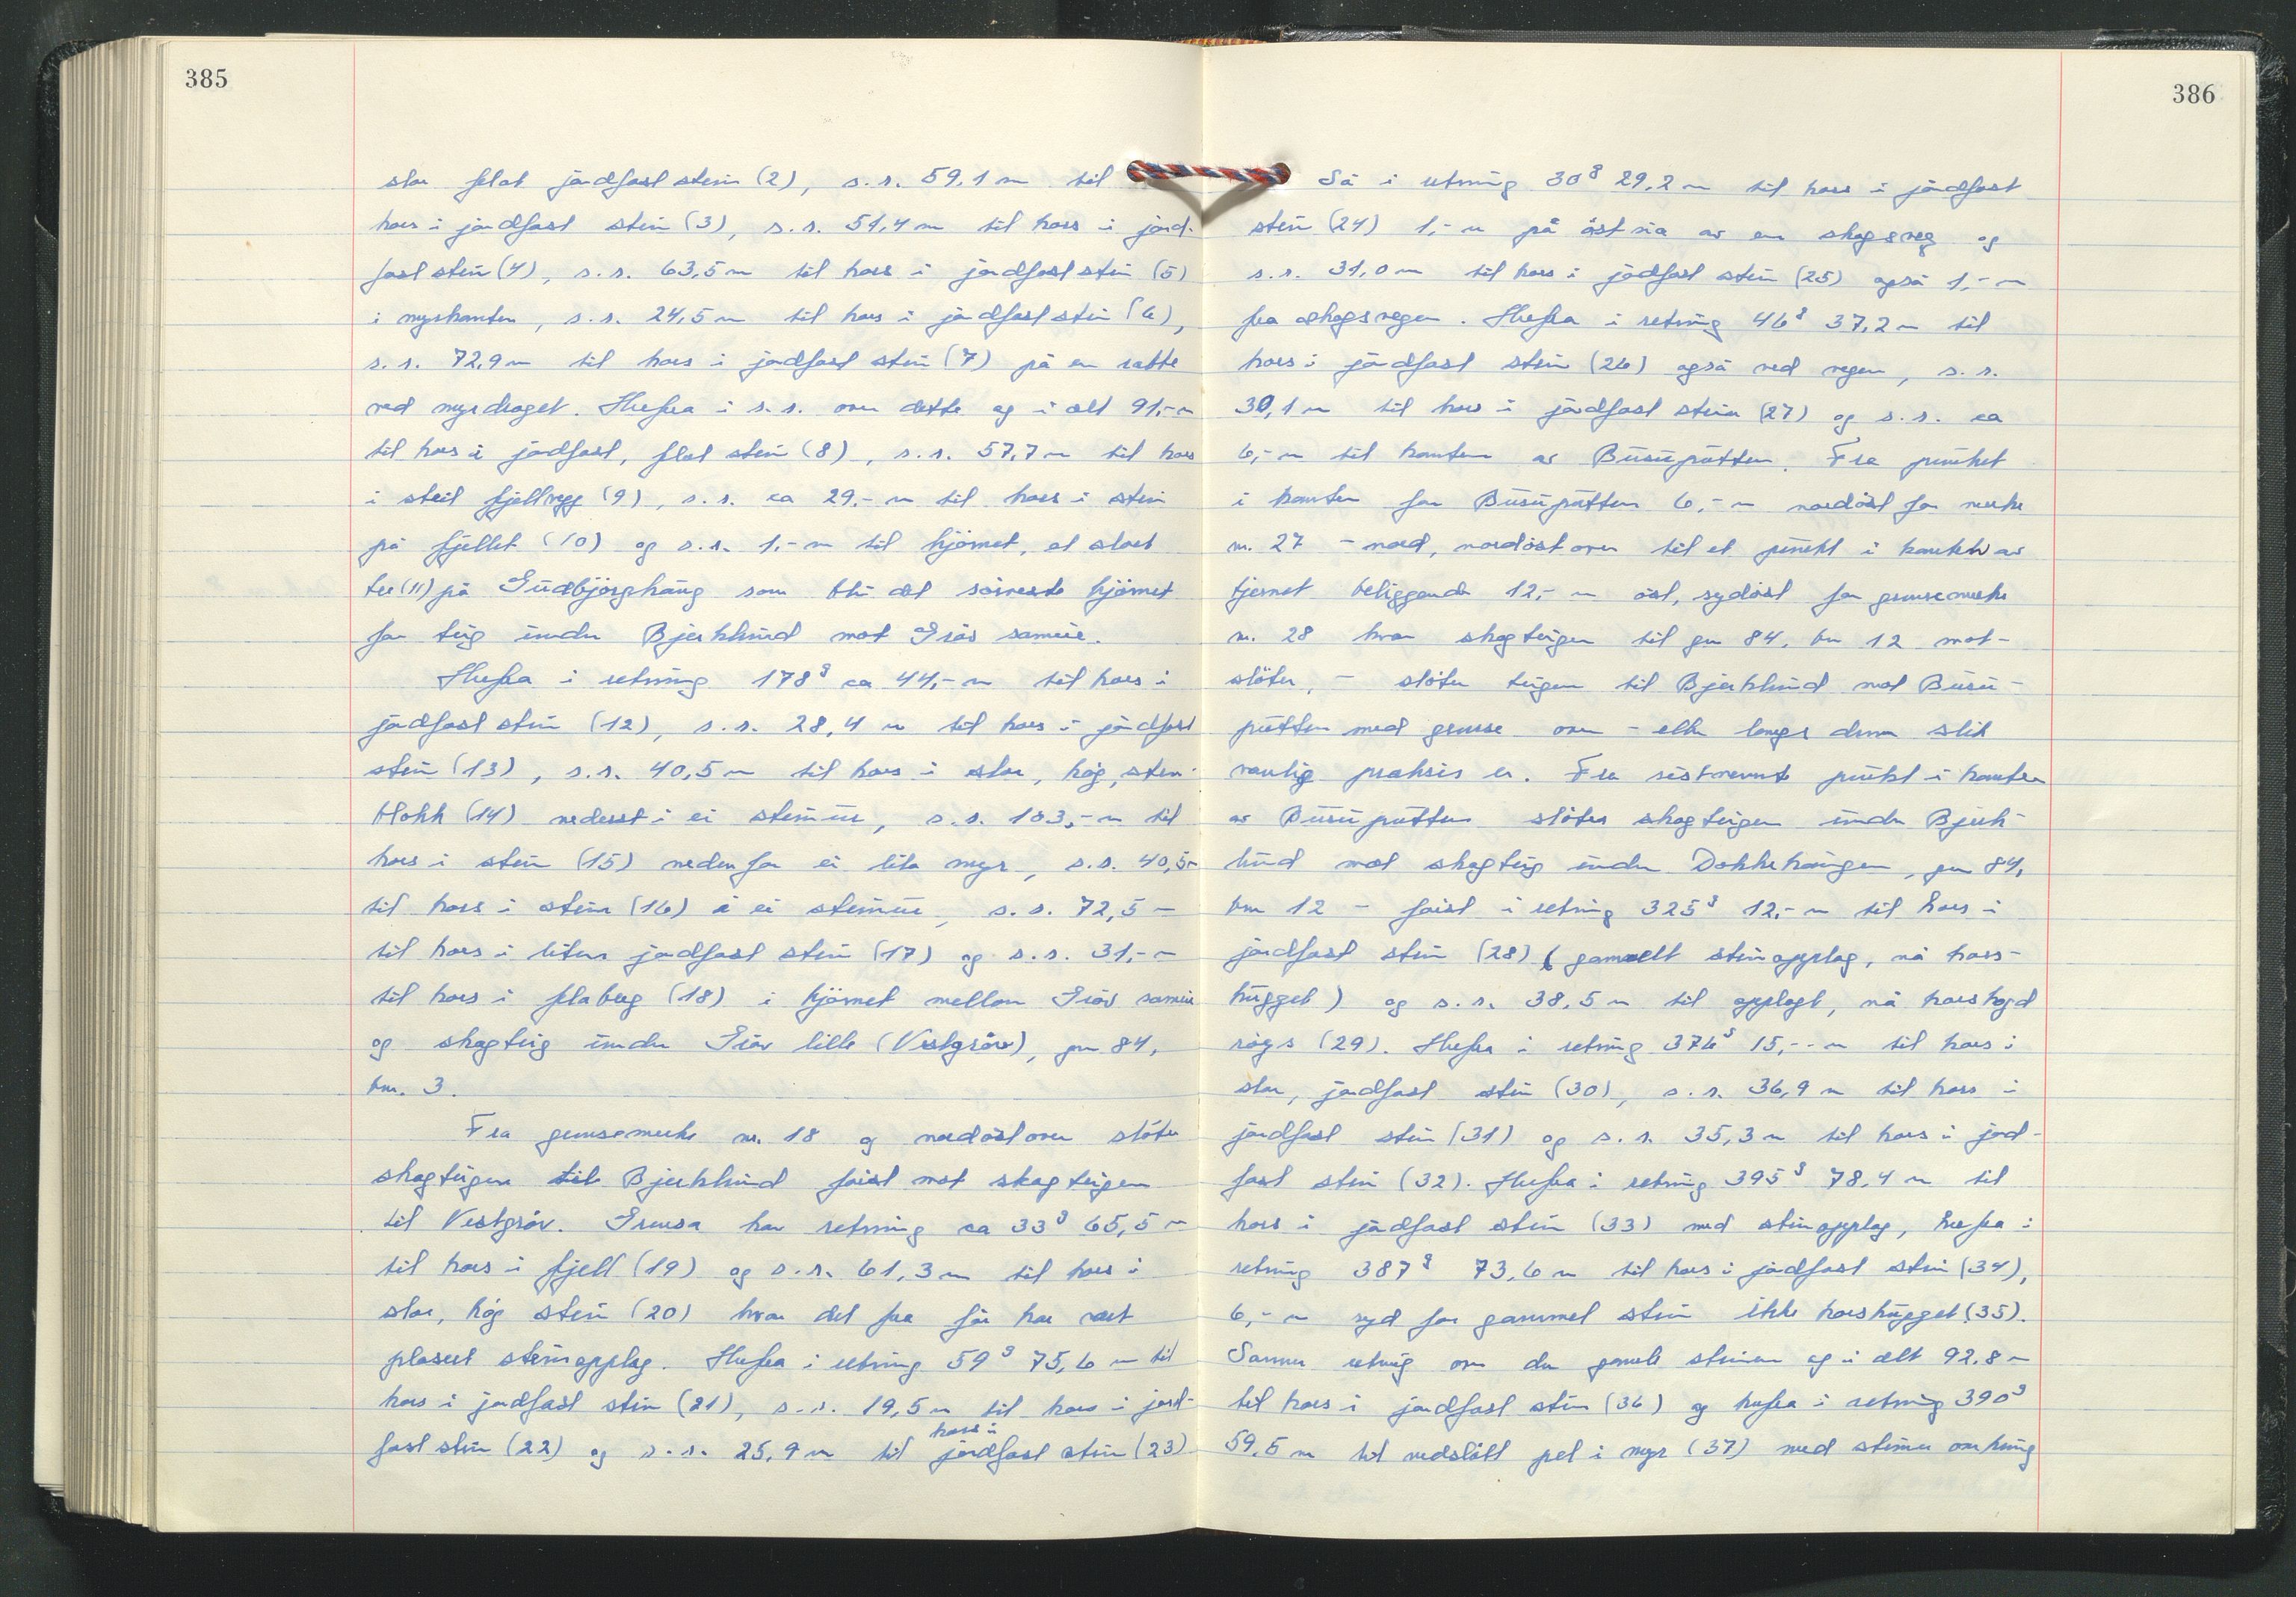 385
stor flat jordfast stein (2), s.r. 59,1 m til
kors i jordfast stein (3), s.r. 51,4 m til kors i jord-
fast stein (4), s.r. 63,5 m til kors i jordfast stein (5)
i myrkanten, s.r. 24,5 m til kors i jordfast stein (6),
s.r. 72,9 m til kors i jordfast stein (7) på en rabbe
ved myrdraget. Herfra i s.r. over dette og i alt 91,- m
til kors i jordfast, flat stein (8), s.r. 57,7 m til kors
i steil fjellvegg (9), s.r. ca 29,- m til kors i stein
på fjellet (10) og s.r. 1,- m til hjørnet, et stort
tre (11) på Gudbjørghaug som blir det sørvestre hjørnet
for teig under Bjerklund mot Grøv sameie.
Herfra i retning 178g ca 44,- m til kors i
jordfast stein (12), s.r. 28,4 m til kors i jordfast
stein (13), s.r. 40,5 m til kors i stor, høg, stein-
blokk (14) nederst i ei steinur, s.r. 103,- m til
kors i stein (15) nedenfor ei lita myr, s.r. 40,5 m
til kors i stein (16) i ei steinur, s.r. 72,5 -
til kors i liten jordfast stein (17) og s.r. 31,- m
til kors i flaberg (18) i hjørnet mellom Grøv sameie
og skogteig under Grøv lille (Vestgrøv), gnr 84,
bnr. 3.
Fra grensemerke nr. 18 og nordøstover støter
skogteigen til Bjerklund først mot skogteigen
til Vestgrøv. Grensa har retning ca 33g 65,5 m
til kors i fjell (19) og s.r. 61,3 m til kors i
stor, høg stein (20) hvor det fra før har vært
plasert steinopplag. Herfra i retning 59g 75,6 m til
kors i jordfast stein (21), s.r. 19,5 m til kors i jord-
fast stein (22) og s.r. 25,9 m til kors i jordfast stein (23)
386
Så i retning 30g 29,2 m til kors i jordfast
stein (24) 1,- m på østsia av en skogsveg og
s.r. 31,0 m til kors i jordfast stein (25) også 1,- m
fra skogsvegen. Herfra i retning 46g 37,2 m til
kors i jordfast stein (26) også ved vegen, s.r.
30,1 m til kors i jordfast stein (27) og s.r. ca
6,- m til kanten av Busuputten. Fra punktet
i kanten for Busuputten 6,- m nordøst for merke
nr. 27 - nord, nordøstover til et punkt i kanten av
tjernet beliggende 12,- m øst, sydøst for grensemerke
nr. 28 hvor skogteigen til gnr 84, bnr 12 mot-
støter, - støter teigen til Bjerklund mot Busu-
putten med grense over - eller langs denne slik
vanlig praksis er. Fra sistnevnte punkt i kanten
av Busuputten støter skogteigen under Bjerk-
lund mot skogteig under Dokkehaugen, gnr 84,
bnr 12 - først i retning 325g 12,- m til kors i
jordfast stein (28) (gammelt steinopplag, nå kors-
hugget) og s.r. 38,5 m til opplagt, nå korshogd
røys (29). Herfra i retning 376g 15,-- m til kors i
stor, jordfast stein (30), s.r. 36,9 m til kors i
jordfast stein (31) og s.r. 35,3 m til kors i jord-
fast stein (32). Herfra i retning 395g 78,4 m til
kors i jordfast stein (33) med steinopplag, herfra i
retning 387g 73,6 m til kors i jordfast stein (34),
6,- m syd for gammel stein ikke korshugget (35).
Samme retning over den gamle steinen og i alt 92,8 m
til kors i jordfast stein (36) og herfra i retning 390g
59,5 m til nedslått pel i myr (37) med steiner omkring